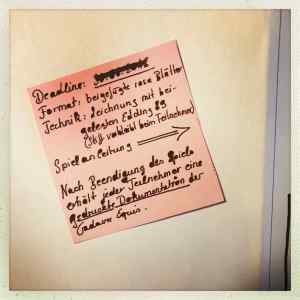 Deadline:
Format: beigefügte rosa Blätter
Technik: Zeichnung mit bei-
gelegten Edding
verbleibt beim Teilnehmer)
Spielanleitung
Nach Beendigung des Spiels
erhält jeder Teilnehmer eine
gedruckte Dokumentation der
Cadavre Equis.